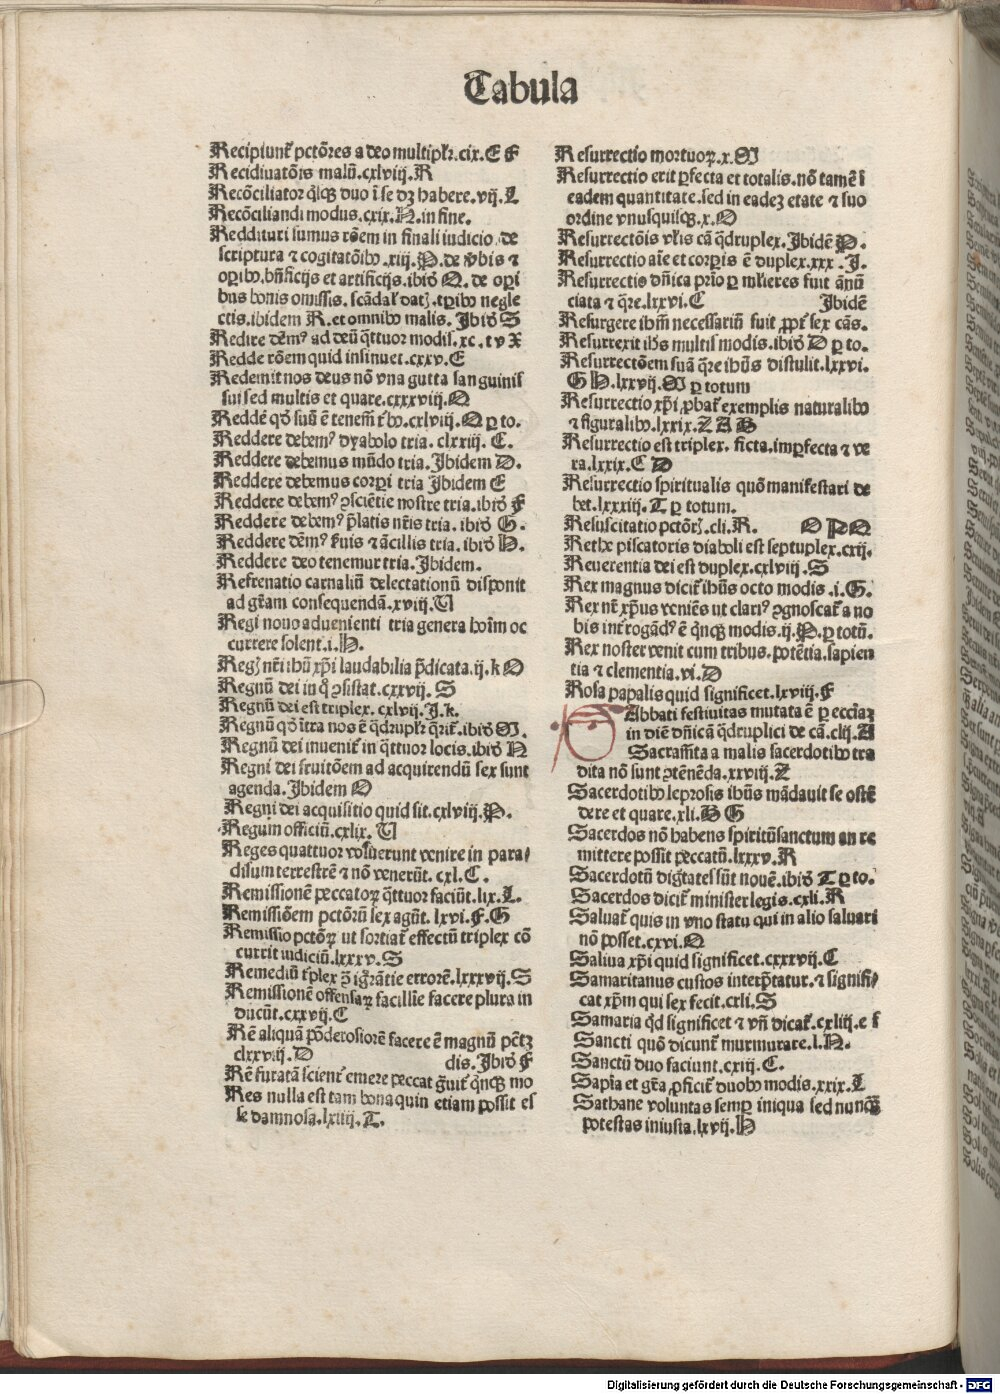 Tabula
Recipiunt̃ pctõres a deo multiplr̃.cix.E F
Recidiuatõis malũ.cxlviij.R
Recõciliator q̃lꝫ duo ĩ se dꝫ habere.vij.L
Recõciliandi modus.cxix.H.in fine.
Reddituri sumus rõem in finali iudicio de
scriptura ⁊ cogitatõibꝰ.xiij.P.de ṽbis ⁊
oꝑibꝰ.bñficijs et artificijs.ibidẽ Q.de oꝑi
bus bonis omissis.scãdal̃ datꝫ.tꝑibꝰ negle
ctis.ibidem R.et omnibꝰ malis. Ibidẽ S
Redire dẽmꝰ ad deũ q̃ttuor modis.xc.t v X
Redde rõem quid insinuet.cxxv.E
Redemit nos deus nõ vna gutta sanguinis
sui sed multis et quare.cxxxviij.Q
Redde qd̃ suũ ẽ tenem̃ t̃bꝰ.cxlviij.O ꝑ to.
Reddere debemꝰ dyabolo tria. clxxiij. C.
Reddere debemus mũdo tria.Ibidem D.
Reddere debemus corꝑi tria Ibidem E
Reddere debemꝰ ꝯsciẽtie nostre tria.ibidẽ F
Reddere debemꝰ p̃latis nr̃is tria.ibidẽ G.
Reddere dẽmꝰ s̃uis ⁊ ãcillis tria.ibidẽ H.
Reddere deo tenemur tria.Ibidem.
Refrenatio carnaliũ delectationũ disponit
ad gr̃am consequendã.xviij.V
Regi nouo aduenienti tria genera hoĩm oc
currere solent.i.H.
Regꝫ nr̃i ihũ xp̃i laudabilia p̃dicata.ij.k O
Regnũ dei in q̊ ꝯsistat.cxxvij.S
Regnũ dei est triplex. cxlvij.I.k.
Regnũ qd̃ ĩtra nos ẽ q̃druplr̃ q̃rit̃.ibidẽ M.
Regnũ dei inuenit̃ in q̃ttuor locis.ibidẽ N
Regni dei fruitõem ad acquirendũ sex sunt
agenda.Ibidem O
Regni dei acquisitio quid sit.cxlviij.P.
Regum officiũ.cxlix. V
Reges quattuor voluerunt venire in para/
disum terrestrẽ ⁊ nõ venerũt. cxl.C.
Remissionẽ peccatoꝝ q̃ttuor faciũt.lix.L.
Remissiõem pctõrũ sex agũt. lxvi.F.G
Remissio pctõꝝ ut sortiat̃ effectũ triplex cõ
currit iudiciũ.lxxxv.S
Remediũ t̃plex ꝯ̃ ignorãtie errorẽ.lxxxvij.S
Remissionẽ offensaꝝ facillie facere plura in
ducũt.cxxvij.C
Rẽ aliquã põderosiorẽ facere ẽ magnũ pctꝫ
clxxvij.D dis.Ibidẽ F
Rẽ furatã scient̃ emere peccat gr̃uit̃ q̃nqꝫ mo
Res nulla est tam bona quin etiam possit es
se damnosa.lxiiij.T.
Resurrectio mortuoꝝ.x.M
Resurrectio erit ꝑfecta et totalis.nõ tamẽ ĩ
eadem quantitate.sed in eadeꝫ etate ⁊ suo
ordine vnusquisqꝫ.x.O
Resurrectõis vl̃is cã q̃druplex.Ibidẽ P.
Resurrectio aĩe et corꝑis ẽ duplex.xxx.I.
Resurrectis dñica prĩo ꝑ ml̃ieres fuit ãnũ
ciata ⁊ q̃re.lxxvi.C Ibidẽ
Resurgere ibm̃ necessariũ fuit ꝓpt̃ sex cãs.
Resurrexit ihũs multis modis.ibidẽ D ꝑ to.
Resurrectõem suã q̃re ihũs distulit.lxxvi.
G H.lxxvij.M ꝑ totum
Resurrectio xp̃i ꝓbat̃ exemplis naturalibꝰ
⁊ figuralibꝰ.lxxix.Z A B
Resurrectio est triplex. ficta.imꝑfecta ⁊ ve
ra.lxxix.C D
Resurrectio spiritualis quõ manifestari de
bet.lxxxiij.T ꝑ totum.
Resuscitatio pctõrꝫ.cli.R. O P Q
Rethe piscatoris diaboli est septuplex.cxij.
Reuerentia dei est duplex.cxlviij.S
Rex magnus dicit̃ ihũs octo modis.i.G.
Rex nr̃ xp̃us veniẽs ut clariꝰ ꝯgnoscat̃ a no
bis int̃rogãdꝰ ẽ q̃nqꝫ modis.ij.P.ꝑ totũ.
Rex noster venit cum tribus.potẽtia.sapien
tia ⁊ clementia.vi.D
Rosa papalis quid significet.lxviij.F
Abbati festiuitas mutata ẽ ꝑ eccĩaꝫ
in diẽ dñicã q̃druplici de cã.clij.A
Sacramẽta a malis sacerdotibꝰ tra
dita nõ sunt ꝯtẽnẽda.xxviij.Z
Sacerdotibꝰ leprosis ihũs mãdauit se ostẽ
dere et quare.xli.B G
Sacerdos nõ habens spiritũsanctum an re
mittere possit peccatũ.lxxxv.R
Sacerdotũ dig̃tates sũt nouẽ.ibidẽ T ꝑ to.
Sacerdos dicit̃ minister legis.cxli.R
Saluat̃ quis in vno statu qui in alio saluari
nõ posset.cxvi.Q
Saliua xp̃i quid significet.cxxxvij.C
Samaritanus custos interp̃tatur.⁊ signifi/
cat xp̃m qui sex fecit.crli.S
Samaria qd̃ significet ⁊ vñ dicat̃.cxliij.e f
Sancti quõ dicunt̃ murmurare.l.N.
Sanctũ duo faciunt.cxiij.C.
Sapĩa et gr̃a ꝓficit̃ duobꝰ modis.xxix.L
Sathane voluntas semꝑ iniqua sed nunqꝫ̃
potestas iniusta.lxvij.H
Digitalisierung gefördert durch die Deutsche Forschungsgemeinschaft - DFG